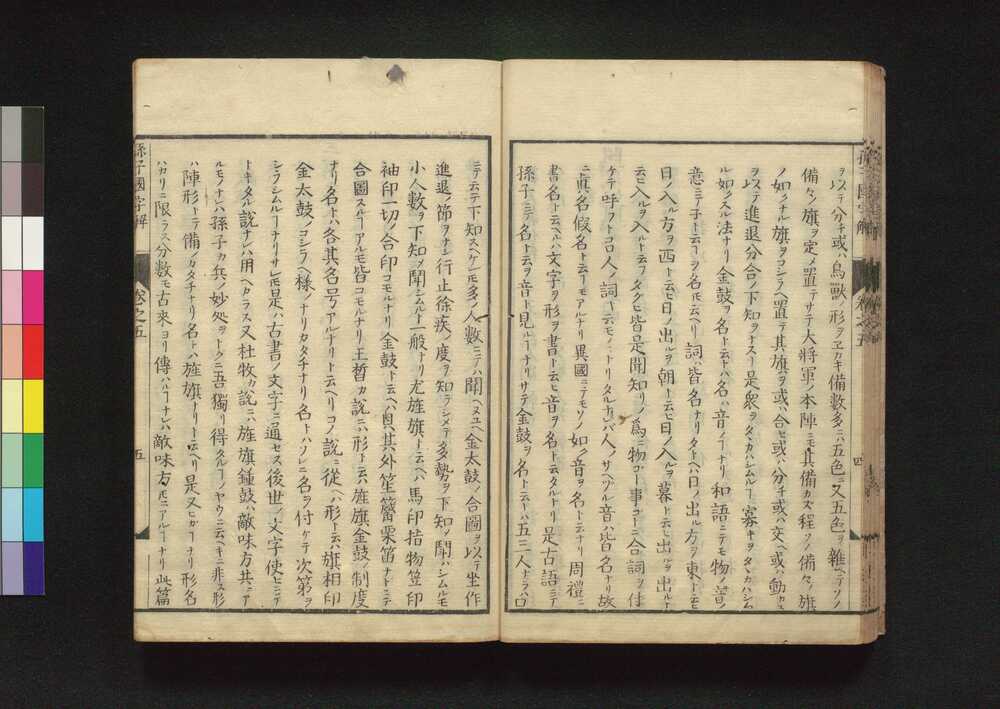 ヲ以テ分チ或ハ鳥獸ノ形ヲエカキ備數多ニハ五色ニ又五色ヲ雜ヘテソノ
備々ノ旗ヲ定メ置テサテ大將軍ノ本陣ニモ其備カス程ノ備々ノ旗
ノ如クナル旗ヲコシラヘ置テ其旗ヲ或ハ合セ或ハ分チ或ハ交ヘ或ハ動カス
ヲ以テ進退分合ノ下知ヲナスヿ是衆ヲタヽカハシムルヿ寡キヲタヽカハシム
ル如クスル法ナリ金鼓ヲ名ト云ヿハ名ハ音ノヿナリ和語ニテモ物ノ音ノ
意ニテ子ト云フヲ名𪜈云ヘリ詞皆名ナリタトヘハ日ノ出ル方ヲ東ト云ヒ
日ノ入ル方ヲ西ト云ヒ日ノ出ルヲ朝ト云ヒ日ノ入ルヲ暮ト云ヒ出ルヲ出ルト
云ヒ入ルヲ入ルト云フタクヒ皆是聞知リノ爲ニ物コト事コトニ合詞ヲ付
ケテ呼フトコロ人ノ詞モ云モノトリタルナレバ人ノサヘツル音ハ皆名ナリ故
ニ眞名假名ト云フモアルナリ異國ニテモソノ如ク音ヲ名ト云ナリ周禮ニ
書名ト云ヘルハ文字ヲ形ヲ書ト云ヒ音ヲ名トタルトリ是古語ニテ
孫子ニテ名ト云ヲ音ト見ルヿナリサテ金鼓ヲ名ト云ヿハ五三人ナラハ口
孫子國字解　卷之五　四
ニテ云テ下知スヘケレ𪜈多ノ人數ニテハ聞ヘヌユヘ金太鼓ノ合圖ヲ以テ坐作
進退ノ節ヲナシ行止徐疾ノ度ヲ知ラシメテ多勢ヲ下知ノ聞ハシムルモ
小人數ヲ下知メ聞シムルト一般ナリ尤旌旗ト云ヘハ馬印指物笠印
袖印一切ノ合印コモルナリ金鼓ト云ヘハ貝其外笙簫栗笛ナトニテ
合圖スルヿアルモ皆コモルナリ王晳カ說ニハ形ト云ハ旌旗金鼓ノ制度
ナリ名トハ各其名号アルナリト云ヘリコノ說ニ從ヘハ形トハ旗相印
金太鼓ノコシラヘ樣ノヿナリカタチナリ名トハソレニ名ヲ付ケテ次第ヲ
シラシムルヿナリサレ𪜈是ハ古書ノ文字ニ通セス後世ノ文字使ヒニテ
トキタル說ナレハ用ヘカラス又杜牧カ說ニハ旌旗鍾鼓ハ敵味方共ニア
ルモノナレハ孫子カ兵ノ妙処ヲトクニ吾獨リ得タルヿノヤウニ云ヘキニ非ス形
ハ陣形トテ備ノカタチナリ名トハ旌旗ナリト云ヘリ是又ヒカヿナリ形名
ハカリニ限ラス分數モ古來ヨリ傳ハルヿナレハ敵味方𪜈ニアルヿナリ此篇
孫子國字解　卷之五　五